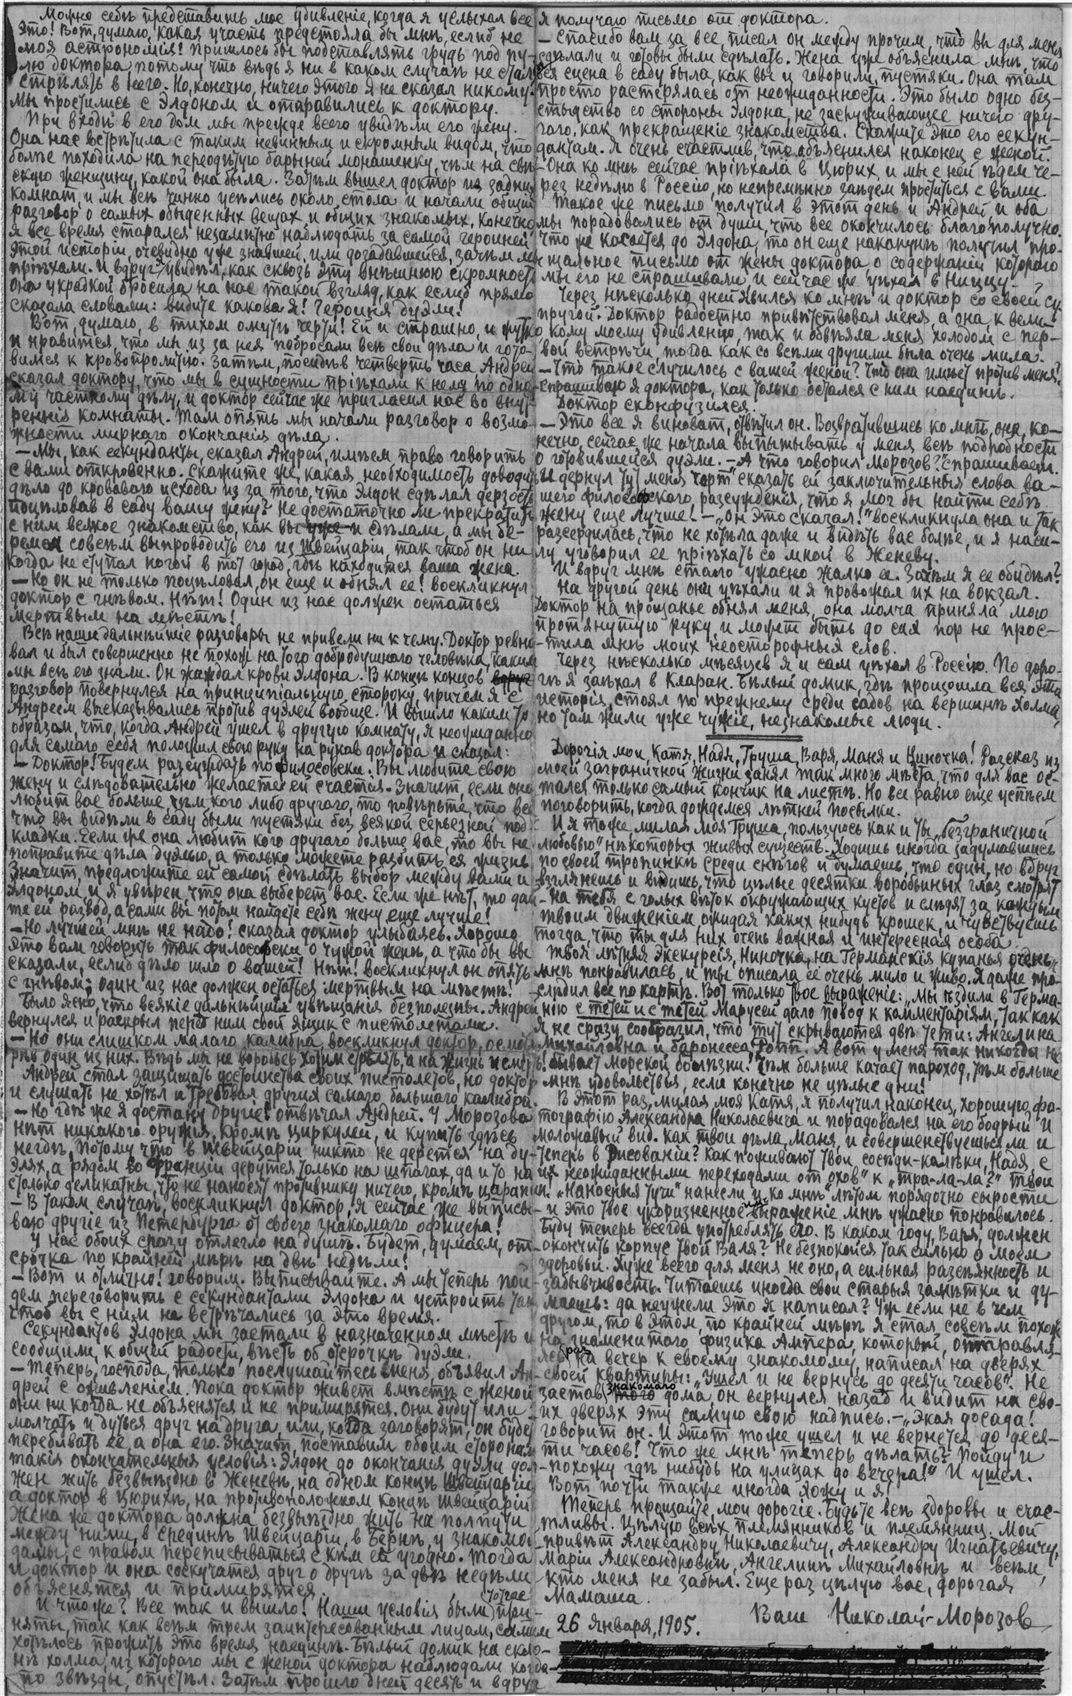 Можно себѣ представить мое удивленіе, когда я услыхал все
это! Вот, думаю, какая участь предстояла бы мнѣ, еслиб не
моя астрономія! Пришлось бы подставлять грудь под пу-
лю доктора, потому что вѣдь я ни в каком случаѣ не стал
стрѣлять в него. Но, конечно, ничего этого я не сказал никому.
Мы простились с Элдоном и отправились к доктору.
При входѣ в его дом мы прежде всего увидѣли его жену.
Она нас встрѣтила с таким невинным и скромным видом, что
болѣе походила на переодѣтую барыней монашенку, чѣм на свѣт-
скую женщину, какой она была. Затѣм вышел доктор из задних
комнат, и мы всѣ чинно усѣлись около стола и начали общій
разговор о самых обыденных вещах и общих знакомых. Конечно
я все время старался незамѣтно наблюдать за самой героиней
этой исторіи, очевидно уже знавшей, или догадавшейся, зачѣм мы
пріѣхали. И вдруг увидѣл, как сквозь эту внѣшнюю скромность
она украдкой бросила на нас такой взгляд, как еслиб прямо
сказала словами: видите какова я! Героиня дуэли!
Вот, думаю, в тихом омутѣ черти! Ей и страшно, и жутко
и нравится, что мы из за нея побросали всѣ свои дѣла и гото-
вимся к кровопролитію. Затѣм, посидѣв четверть часа Андрей
сказал доктору, что мы в сущности пріѣхали к нему по одно-
му частному дѣлу, и доктор сейчас же пригласил нас во внут-
реннія комнаты. Там опять мы начали разговор о возмо-
жности мирнаго окончанія дѣла.
— Мы, как секунданты, сказал Андрей, имѣем право говорить
с вами откровенно. Скажите же, какая необходимость доводить
дѣло до кроваваго исхода из за того, что Элдон сдѣлал дерзость
поцѣловав в саду вашу жену? Не достаточно ли прекратить
с ним всякое знакомство, как вы уже и сдѣлали, а мы бе-
ремся совсѣм выпроводить его из Швейцаріи, так чтоб он ни
когда не ступал ногой в тот город, гдѣ находится ваша жена.
— Но он не только поцѣловал, он еще и обнял ее! воскликнул
доктор с гнѣвом. Нѣт! Один из нас должен остаться
мертвым на мѣстѣ!
Всѣ наши дальнѣйшіе разговоры не привели ни к чему. Доктор ревно-
вал и был совершенно не похож на того добродушного человѣка, каким
мы всѣ его знали. Он жаждал крови Элдона. В концѣ концов
разговор повернулся на принципіальную сторону, причем я с
Андреем высказывались против дуэлей вообще. И вышло каким то
образом, что, когда Андрей ушел в другую комнату, я неожиданно
для самого себя положил свою руку на рукав доктора и сказал:
— Доктор! Будем разсуждать по философски. Вы любите свою
жену и слѣдовательно желаете ей счастья. Значит, если она
любит вас больше, чѣм кого либо другого, то повѣрьте, что все
что вы видѣли в саду были пустяки без всякой серьезной под-
кладки. Если же она любит кого другого больше вас, то вы не
поправите дѣла дуэлью, а только можете разбить ея жизнь.
Значит, предложите ей самой сдѣлать выбор между вами и
Элдоном, и я увѣрен, что она выберет вас. Если же нѣт, то дай-
те ей развод, а сами вы потом найдете себѣ жену еще лучше!
— Но лучшей мнѣ не надо! сказал доктор улыбаясь. Хорошо
это вам говорить так философски о чужой женѣ, а что бы вы
сказали, еслиб дѣло шло о вашей! Нѣт! воскликнул он опять
с гнѣвом, один из нас должен остаться мертвым на мѣстѣ!
Было ясно, что всякія дальнѣйшія увѣщанія безполезны. Андрей
вернулся и раскрыл перед ним свой ящик с пистолетами.
— Но они слишком малаго калибра, воскликнул доктор, осмот-
рѣв один из них. Вѣдь мы не воробьев хотим стрѣлять, а на жизнь и смерть!
Андрей стал защищать достоинства своих пистолетов, но доктор
и слушать не хотѣл и требовал других самаго большого калибра.
— Но гдѣ же я достану другіе? отвѣчал Андрей. У Морозова
нѣт никакого оружія, кромѣ циркулей, и купить здѣсь
негдѣ, потому что в Швейцаріи никто не дерется на ду-
элях, а рядом во Франціи дерутся только на шпагах, да и то на
столько деликатны, что не наносят противнику ничего, кромѣ царапин.
— В таком случаѣ, воскликнул доктор, я сейчас же выписы-
ваю другіе из Петербурга от своего знакомаго офицера!
У нас обоих сразу отлегло на душѣ. Будет, думаем, от-
срочка по крайней мѣрѣ на двѣ недѣли!
— Вот и отлично! говорим. Выписывайте. А мы теперь пой-
дем переговорить с секундантами Элдона и устроить так
чтоб вы с ним не встрѣчались за это время.
Секундантов Элдона мы застали в назначенном мѣстѣ и
сообщили, к общей радости, вѣсть об отсрочкѣ дуэли.
— Теперь, господа, только послушайтесь меня, объявил Ан-
дрей с оживлением. Пока доктор живет вмѣстѣ с женой
они никогда не объяснятся и не примирятся. Они будут или
молчать и дуться друг на друга, или, когда заговорят, он будет
перебивать ее, а она его. Значит, поставим обоим сторонам
такія окончательныя условія: Элдон до окончанія дуэли дол-
жен жить безвыѣздно в Женевѣ, на одном концѣ Швейцаріи
а доктор в Цюрихѣ, на противоположном концѣ Швейцаріи
Жена же доктора должна безвыѣздно жить на полпути
между ними, в срединѣ Швейцаріи, в Бернѣ, у знакомой
дамы, с правом переписываться с кѣм ей угодно. Тогда
и доктор и она соскучатся друг о другѣ за двѣ недѣли
объяснятся и примирятся.
И что же? Все так и вышло! Наши условія были тотчас при-
няты, так как всѣм трем заинтересованным лицам, самим
хотѣлось прожить это время наединѣ. Бѣлый домик на скло-
нѣ холма, из котораго мы с женой доктора наблюдали когда-
то звѣзды, опустѣл. Затѣм прошло дней десять и вдруг
я получаю письмо от доктора.
— Спасибо вам за все, писал он между прочим, что вы для меня
сдѣлали и готовы были сдѣлать. Жена уже объяснила мнѣ, что
вся сцена в саду была, как вы и говорили, пустяки. Она там
просто растерялась от неожиданности. Это было одно без-
стыдство со стороны Элдона, не заслуживающее ничего дру-
гого, как прекращеніе знакомства. Скажите это его секун-
дантам. Я очень счастлив, что объяснился наконец с женой.
Она ко мнѣ сейчас пріѣхала в Цюрих, и мы с ней ѣдем че-
рез недѣлю в Россію, но непремѣнно заѣдем проститься с вами.
Такое же письмо получил в этот день и Андрей, и оба
мы порадовались от души, что все окончилось благополучно.
Что же касается до Элдона, то он еще наканунѣ получил про-
щальное письмо от жены доктора, о содержаніи котораго
мы его не спрашивали, и сейчас же уѣхал в Ниццу.
Через нѣсколько дней явился ко мнѣ и доктор со своей су-
пругой. Доктор радостно привѣтствовал меня, а она, к вели-
кому моему удивленію, так и обвѣяла меня холодом с пер-
вой встрѣчи, тогда как со всѣми другими была очень мила.
— Что такое случилось с вашей женой? Что она имѣет против меня?
спрашиваю я доктора, как только остался с ним наединѣ.
Доктор сконфузился.
— Это все я виноват, отвѣтил он. Возвратившись ко мнѣ, она, ко-
нечно, сейчас же начала выпытывать у меня всѣ подробности
о готовившейся дуэли. — А что говорил Морозов? спрашивает.
И дернул тут меня чорт сказать ей заключительныя слова ва-
шего философскаго разсужденія, что я мог бы найти себѣ
жену еще лучше! — „Он это сказал!" воскликнула она и так
разсердилась, что не хотѣла даже и видѣть вас болѣе, и я наси-
лу уговорил ее пріѣхать со мной в Женеву.
И вдруг мнѣ стало ужасно жалко ее. Зачѣм я ее обидѣл?
На другой день они уѣхали и я провожал их на вокзал.
Доктор на прощанье обнял меня, она молча приняла мою
протянутую руку, и может быть до сих пор не прос-
тила мнѣ моих неосторожных слов.
Через нѣсколько мѣсяцев я и сам уѣхал в Россію. По доро-
гѣ я заѣхал в Кларан. Бѣлый домик, гдѣ произошла вся эта
исторія, стоял по прежнему среди садов на вершинѣ холма,
но там жили уже чужіе, незнакомые люди.
Дорогія мои, Катя, Надя, Груша, Варя, Маня и Ниночка! Разсказ из
моей заграничной жизни занял так много мѣста, что для вас ос-
тался только самый кончик на листѣ. Но все равно еще успѣем
поговорить, когда дождемся лѣтней посылки.
И я тоже, милая моя Груша, пользуюсь как и ты „безграничной
любовью" нѣкоторых живых существ. Ходишь иногда задумавшись
по своей тропинкѣ среди снѣгов и думаешь, что один, но вдруг
взглянешь и видишь, что цѣлые десятки воробьиных глаз смотрят
на тебя с голых вѣток окружающих кустов и слѣдят за каждым
твоим движеньем ожидая каких нибудь крошек, и чувствуешь
тогда, что ты для них очень важная и интересная особа.
Твоя лѣтняя экскурсія, Ниночка, на Германскія купанья очень
мнѣ понравилась, и ты описала ее очень мило и живо. Я даже про-
слѣдил все по картѣ. Вот только твое выраженіе: „Мы ѣздили в Герма-
нію с тетей и с тетей Марусей дало повод к комментаріям, так как
я не сразу сообразил, что тут скрываются двѣ тети: Ангелина
Михайловна и баронесса Ропп. А вот у меня так никогда не
бывает морской болѣзни! Чѣм больше качает пароход, тѣм больше
мнѣ удовольствья, если конечно не цѣлые дни!
В этот раз, милая моя Катя, я получил наконец, хорошую фо-
тографію Александра Николаевича и порадовался на его бодрый и
моложавый вид. Как твои дѣла, Маня, и совершенствуешься ли и
теперь в рисованіи? Как поживают твои сосѣди-калѣки, Надя, с
их неожиданными переходами от охов" к „тра-ла-ла?" Твои
„Наносныя тучи" нанесли и ко мнѣ лѣтом порядочно сырости
и это твое укоризненное выраженіе мнѣ ужасно понравилось.
Буду теперь всегда употреблять его. В каком году, Варя, должен
окончить корпус твой Валя? Не безпокойся так сильно о моем
здоровьи. Хуже всего для меня не оно, а сильная разсѣянность и
забывчивость. Читаешь иногда свои старыя замѣтки и ду-
маешь: да неужели это я написал? Уж если не в чем
другом, то в этом, по крайней мѣрѣ я стал совсѣм похож
на знаменитаго физика Ампера, который, отправля-
ясь раз на вечер к своему знакомому, написал на дверях
своей квартиры: „Ушел и не вернусь до десяти часов". Не
застав знакомаго дома, он вернулся назад и видит на сво-
их дверях эту самую свою надпись. — „Экая досада!
говорит он. И этот тоже ушел и не вернется до деся-
ти часов! Что же мнѣ теперь дѣлать? Пойду и
похожу гдѣ нибудь на улицах до вечера!" И ушел.
Вот почти также иногда хожу и я!
Теперь прощайте, мои дорогіе. Будьте всѣ здоровы и счас-
тливы. Цѣлую всѣх племянников и племянниц. Мой
привѣт Александру Николаевичу, Александру Игнатьевичу,
Маріи Александровнѣ, Ангелинѣ Михайловнѣ и всѣм,
кто меня не забыл. Еще раз цѣлую вас, дорогая
Мамаша.
Ваш Николай Морозов
26 Января, 1905.